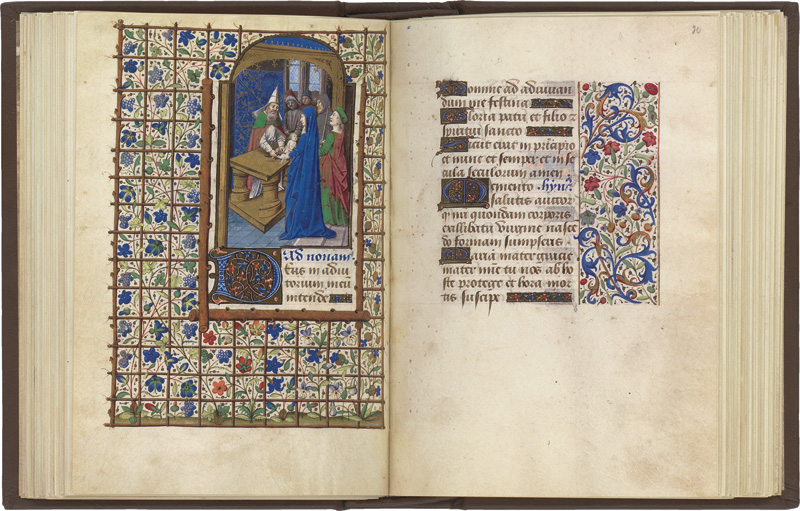 Ad nonam
eus in adiu
torium meu
intende
30
Domine ad adiuuan
dum me festina
Gloria patri et filio z
spiritui sancto
Sicut erat in prīcipio
et nunc et semper et in se
cula seculorum amen
Memento hyn
salutis auctor
q nri quondam corporis
ex illibata virgine nasce
do formam sumpseris
Maria mater gracie
mater mie tu nos ab ho
ste protege et hora mor
tis suscipe